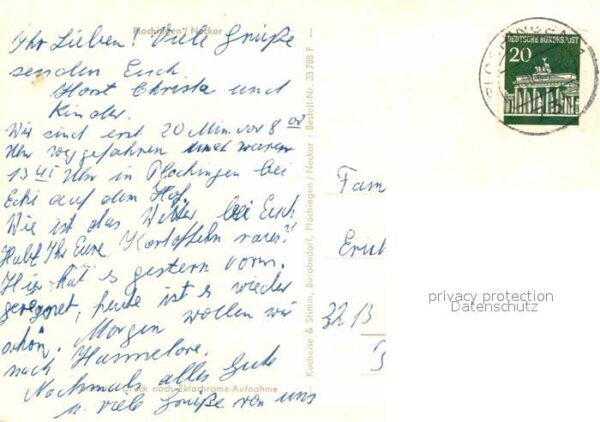 Plochingen / Neckar
Ihr Lieben! Viele Grüße
senden Euch
Horst Christa und
Kinder.
Wir sind erst 20 Min vor 8 00
Uhr weggefahren und waren
13 45 Uhr in Plochingen bei
Ecki auf dem Hof.
Wie ist das Wetter bei Euch
Habt Ihr Eure Kartoffeln raus?
Hier hat es gestern vorm.
geregnet, heute ist es wieder
schön. Morgen wollen wir
nach Hannelore.
Nochmals alles Gute
u. viele Grüße von uns
nach Ektachrome-Aufnahme
Kocheise & Stimm, Bürobedarf, Plochingen / Neckar - Bestell-Nr. 33 788 F
DEUTSCHE BUNDESPOST
20
Fam
Erich
3213
privacy protection
Datenschutz